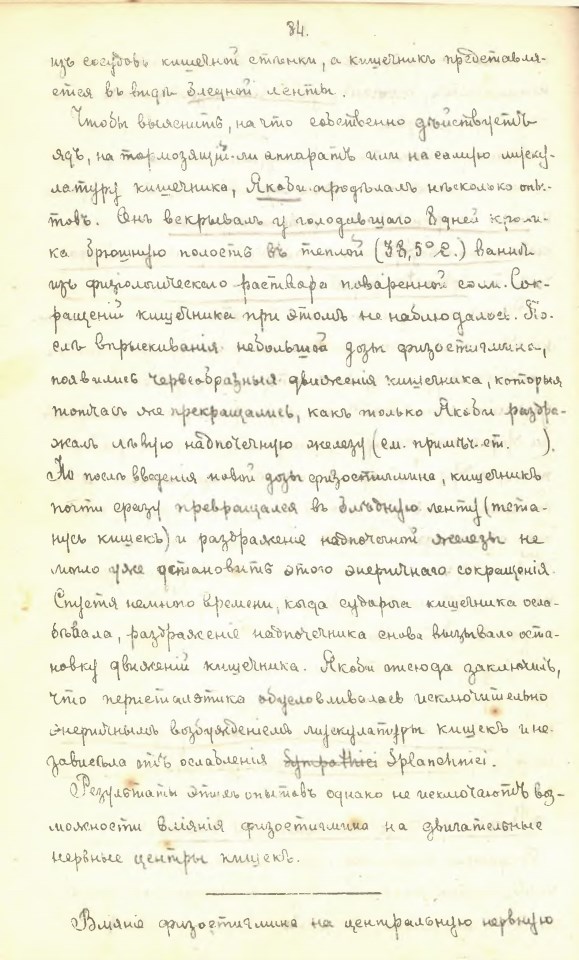 84.
изъ сосудовъ кишечной стѣнки, а кишечникъ представля-
ется въ видѣ блѣдной ленты.
Чтобы выяснить, на что собственно дѣйствуетъ
ядъ, на тормозящій-ли аппаратъ или на самую муску-
латуру кишечника, Якоби продѣлалъ нѣсколько опы-
товъ. Онъ вскрывалъ у голодавшаго 8 дней кроли-
ка брюшную полость въ теплой (38,5° С.) ваннѣ
изъ физіологическаго раствора поваренной соли. Сок-
ращеній кишечника при этомъ не наблюдалось. По-
слѣ впрыскиванія небольшой дозы физостигмина,
появились червеобразныя движенія кишечника, которыя
тотчасъ же прекращались, какъ только Якоби раздра-
жалъ лѣвую надпочечную железу (см. примѣч. ст. ).
Но послѣ введенія новой дозы физостигмина, кишечникъ
почти сразу превращался въ блѣдную ленту (тета-
нусъ кишекъ) и раздраженіе надпочечной железы не
могло уже остановить этого энергичнаго сокращенія.
Спустя немного времени, когда судорога кишечника осла-
бѣвала, раздраженіе надпочечника снова вызывало оста-
новку движеній кишечника. Якоби отсюда заключилъ,
что перистальтика обусловливалась исключительно
энергичнымъ возбужденіемъ мускулатуры кишекъ и не
зависѣла отъ ослабленія Sympathici Splanchnici.
Результаты этихъ опытовъ однако не исключаютъ воз-
можности вліянія физостигмина на двигательные
нервные центры кишекъ.
Вліяніе физостигмина на центральную нервную